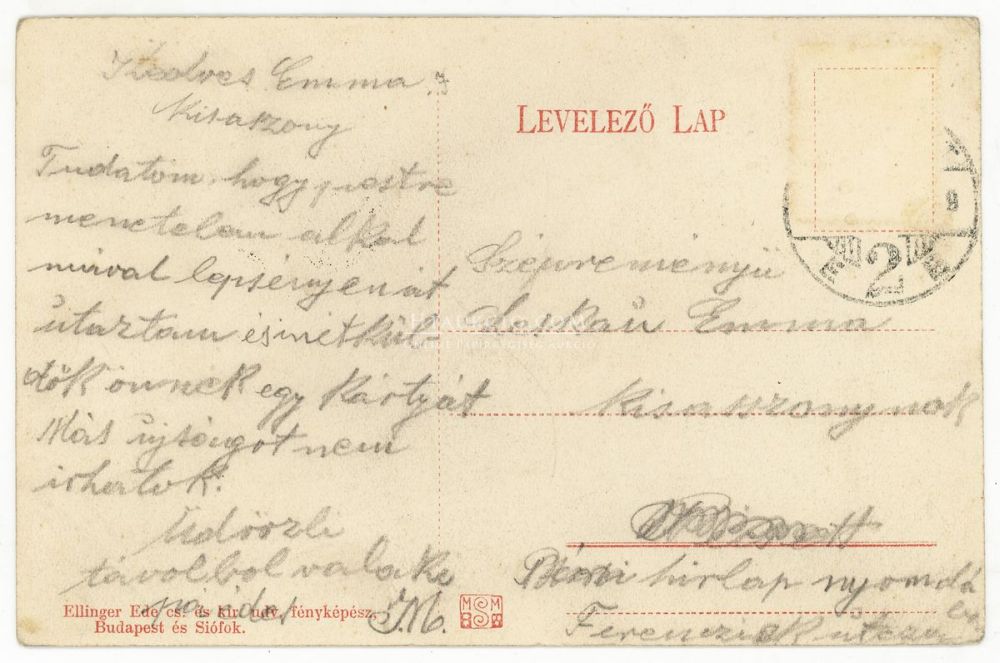 Kedves Emma
Kisaszony
Tudatom, hogy pestre
menetelem alkal
mával lepsényen át
utaztam és im kül
dök önnek egy kártyát
Más ujságot nem
irhatok.
Üdvözli
távolbol valaki
J.M.
Ellinger Ede cs. és kir. udv. fényképész,
Budapest és Siófok.
LEVELEZŐ LAP
2
Szépreményü
Emma
kisasszonynak
hirlap nyomda
Ferencziek utcza